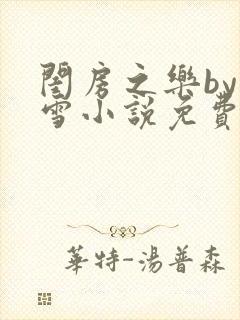 閨房之樂by
雪小說免費
華特-湯普森